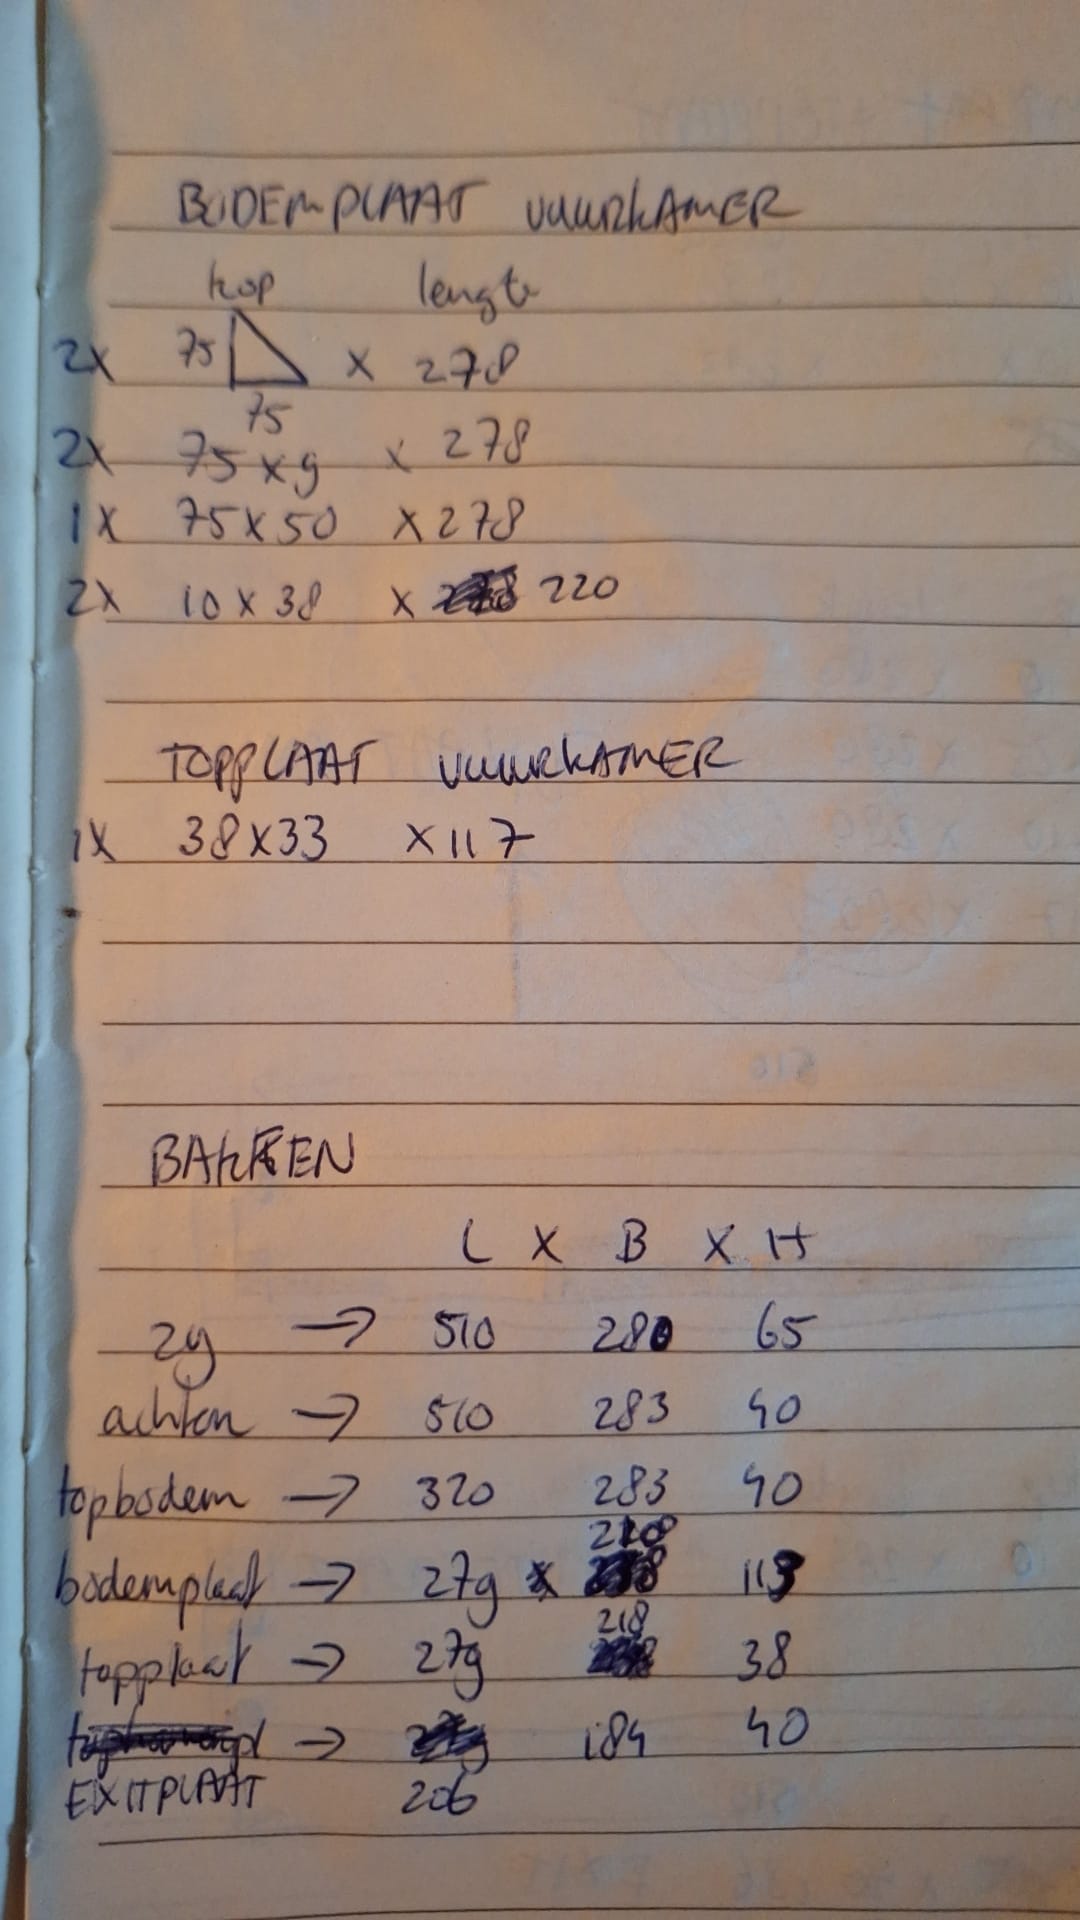 BODEMPLAAT VUURKAMER
kop lengte
2x 75 x 278
75
2x 75 x 9 x 278
1x 75 x 50 x 278
2x 10 x 38 x 220
TOPPLAAT VUURKAMER
1x 38 x 33 x 117
BAKKEN
L x B x H
zy → 510 280 65
achter → 510 283 40
topbodem → 320 283 40
218
bodemplaat → 279 x 113
218
topplaat → 279 38
→ 184 40
EXITPLAAT 206